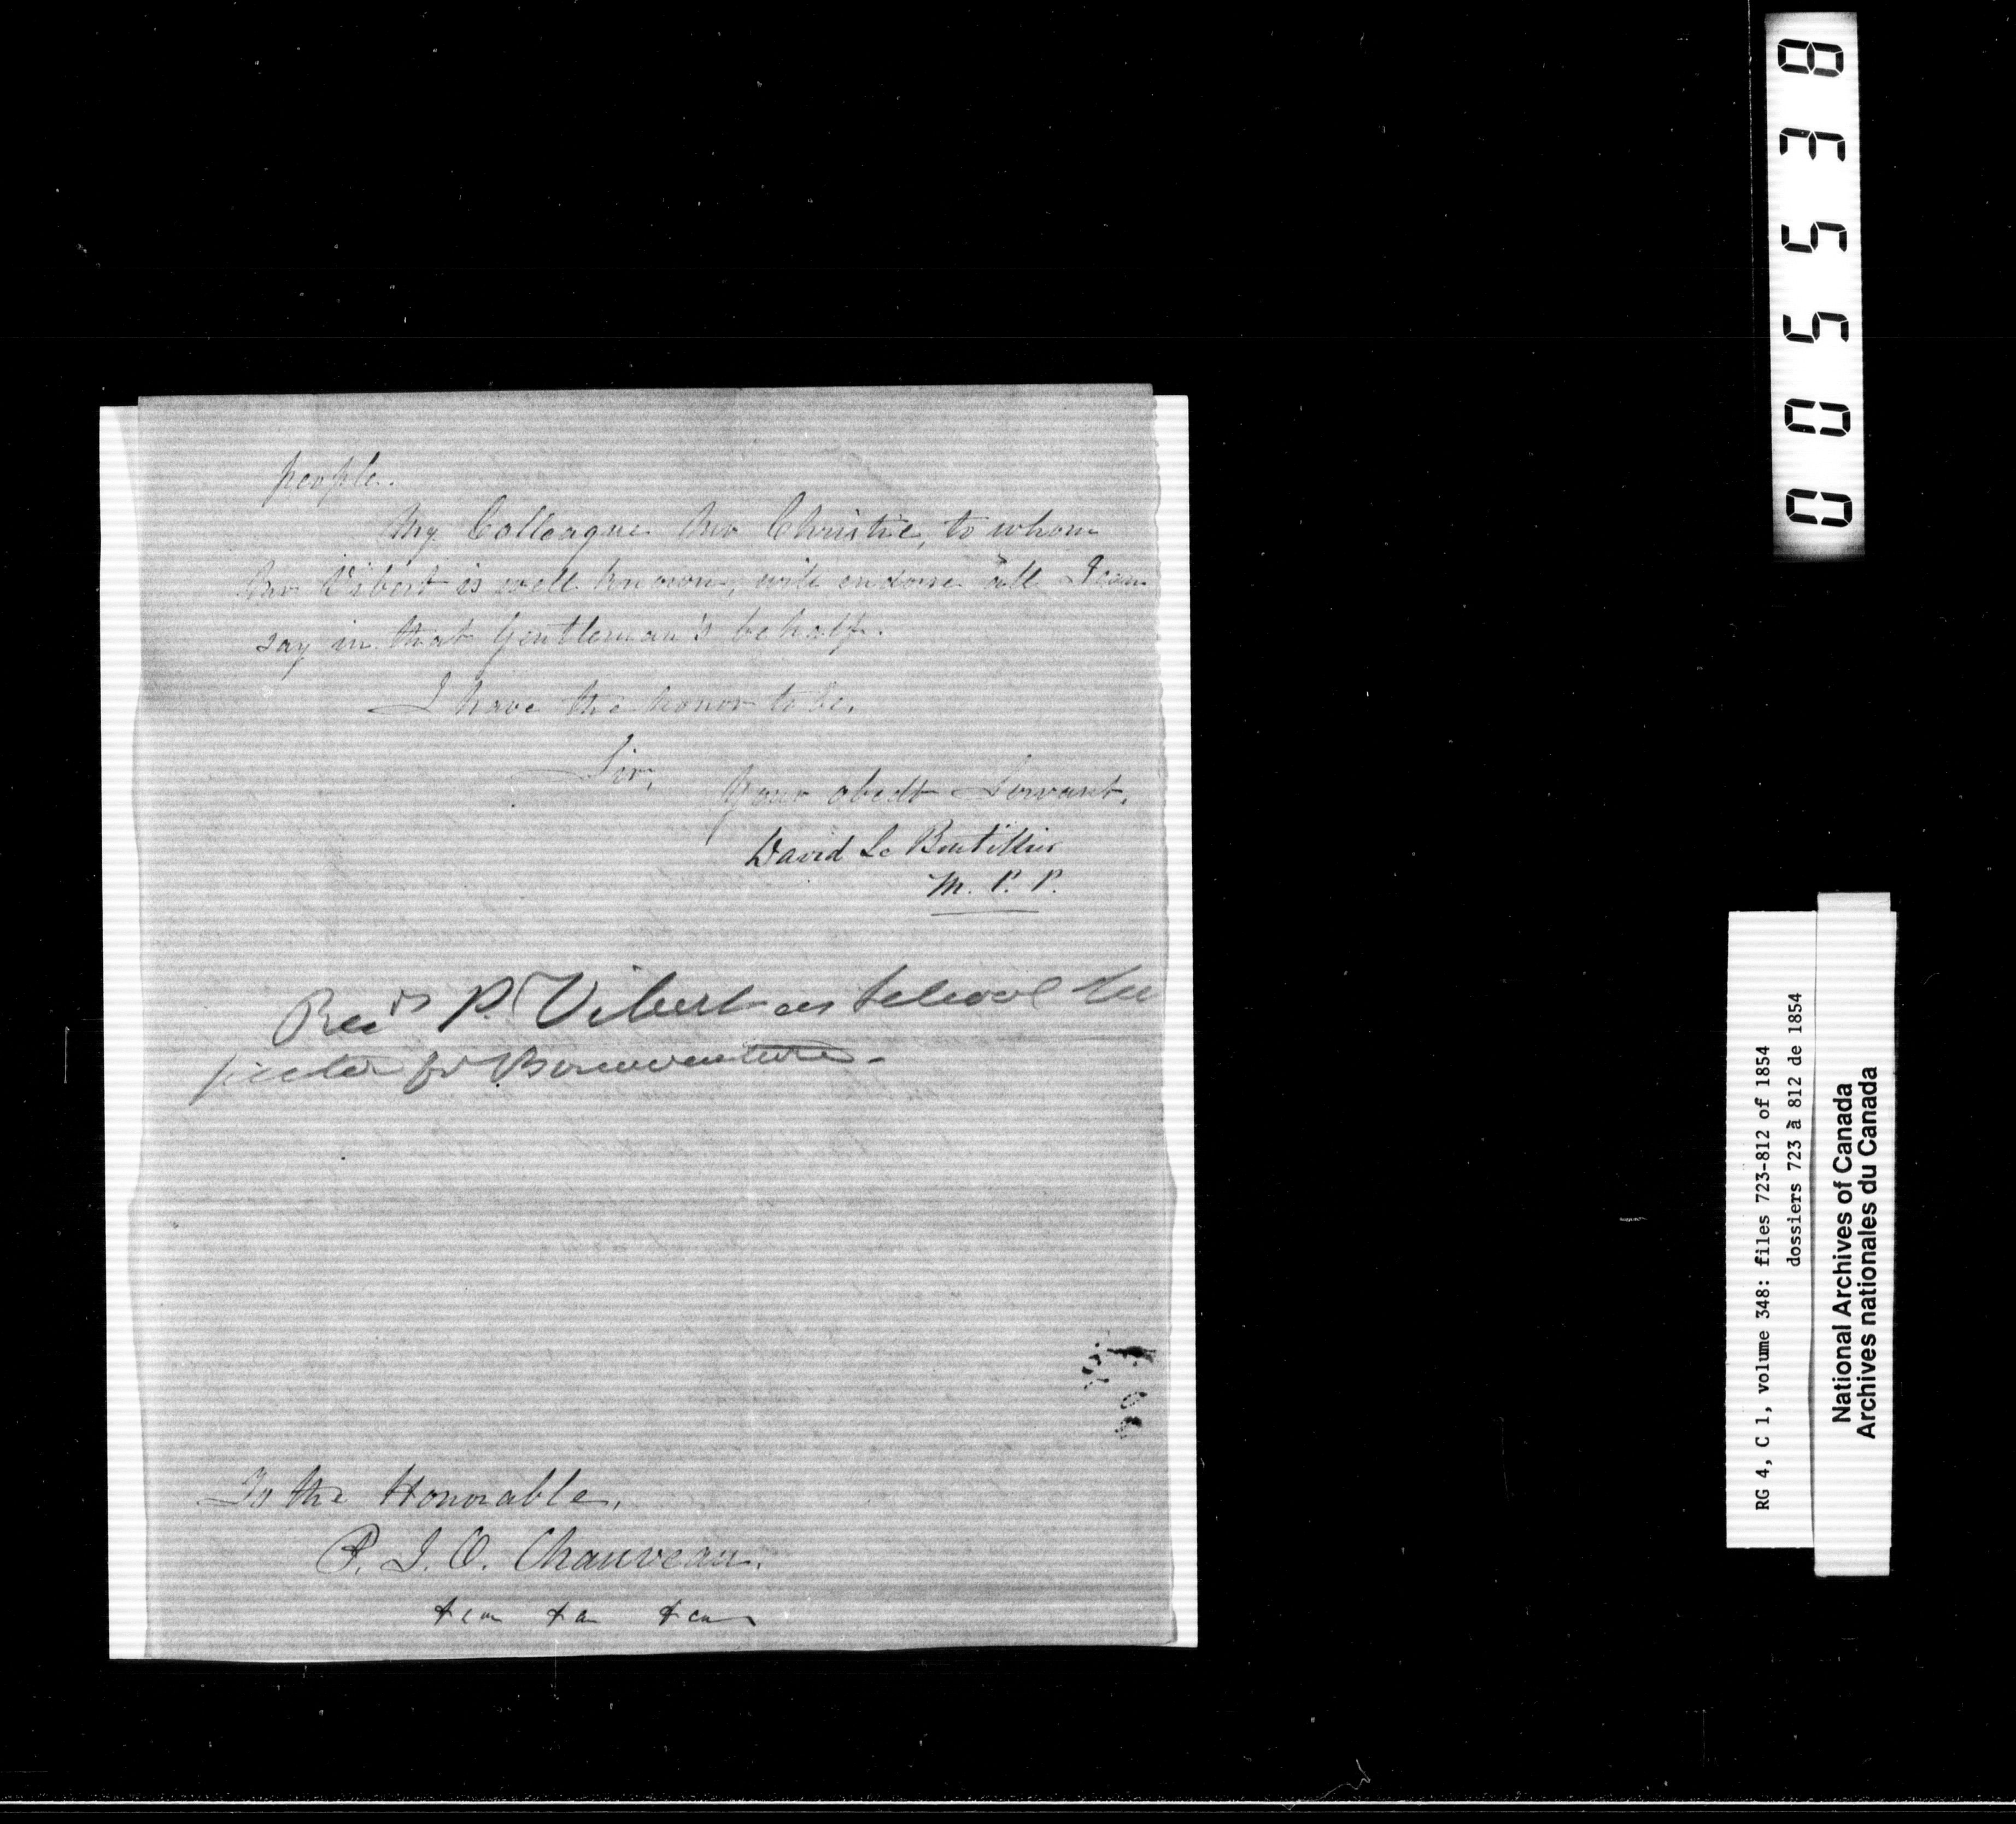 people.
My Colleague Mr Christie, to whom
Mr Vibert is well known, will endorse all I can
say in that Gentleman's behalf.
I have the honor to be,
Sir,
Your obedt Servant,
David Le Boutillier
M. P. P.
P. Vibert as School Ins
pector for Bonaventure -
To the Honorable,
P. J. O. Chauveau.
&c &c &c
005538
RG 4, C 1, volume 348: files 723-812 of 1854
dossiers 723 à 812 de 1854
National Archives of Canada
Archives nationales du Canada